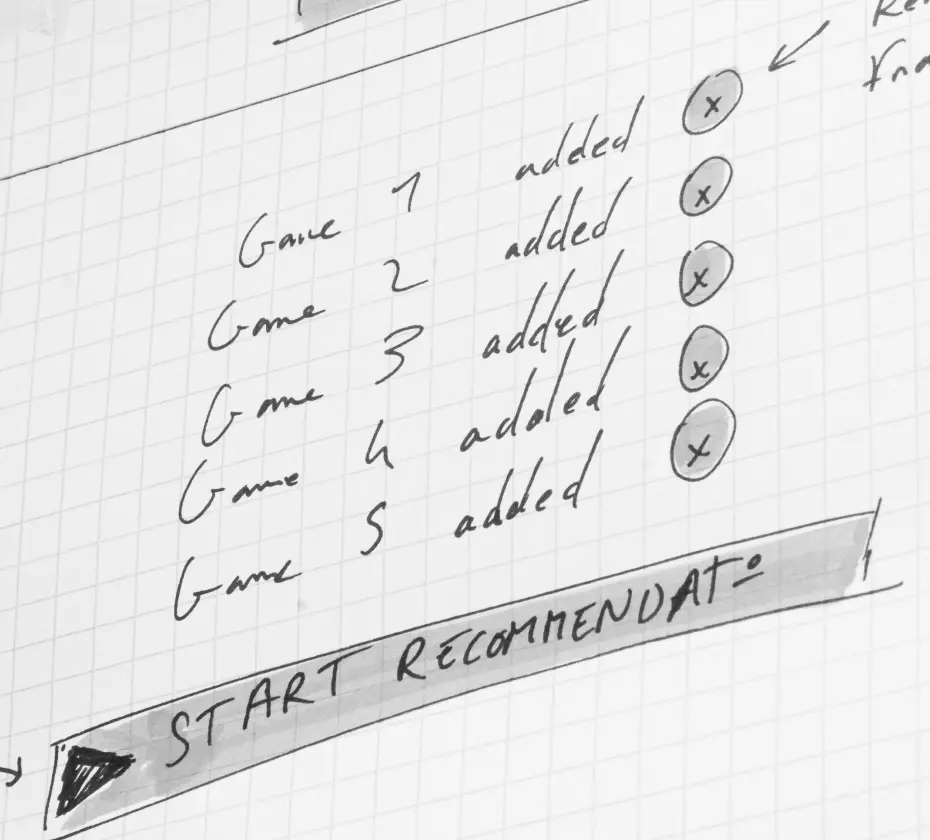 Game 1 added x
Game 2 added x
Game 3 added x
Game 4 added x
Game 5 added x
START RECOMMENDATO